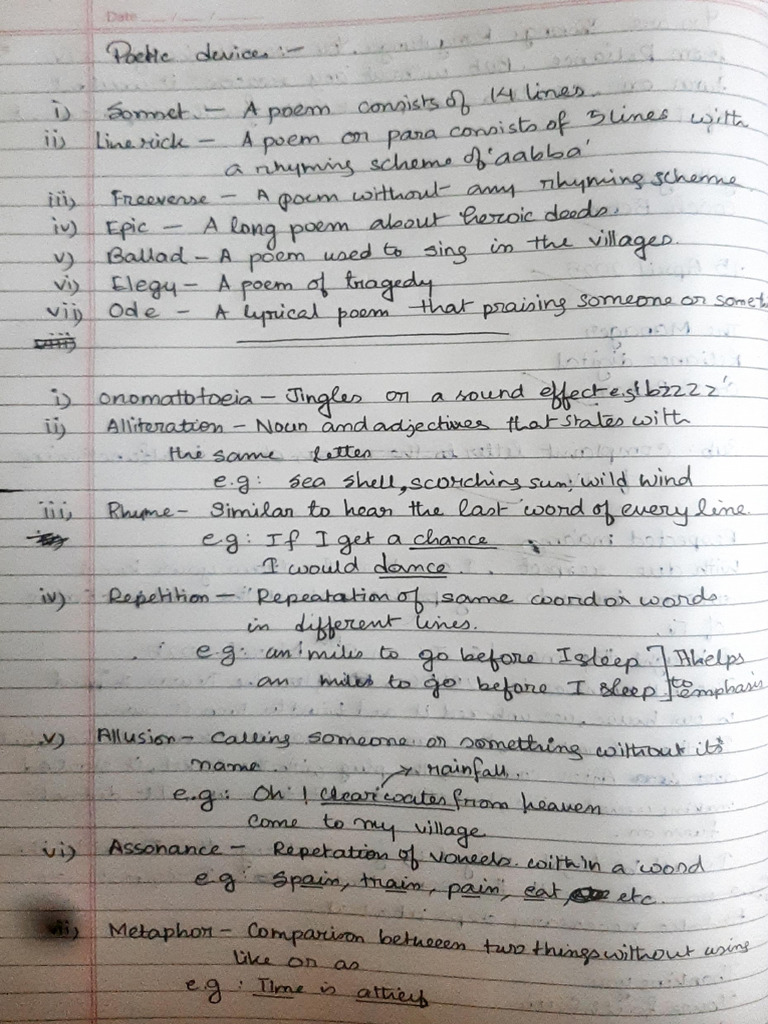 Date
Poetic device:-
i) Sonnet - A poem consists of 14 lines.
ii) Limerick - A poem or para consists of 5 lines with
a rhyming scheme of 'aabba'
iii) Freeverse - A poem without any rhyming scheme
iv) Epic - A long poem about heroic deeds.
v) Ballad - A poem used to sing in the villages.
vi) Elegy - A poem of tragedy
vii) Ode - A lyrical poem that praising someone or somet
i) onomatotoeia - Jingles or a sound effect eg 'bzzzz'
ii) Alliteration - Noun and adjectives that states with
the same letter
e.g: sea shell, scorching sun, wild wind
iii) Rhyme - Similar to hear the last word of every line.
e.g: If I get a chance
I would dance.
iv) Repetition - Repeatation of same word or words
in different lines.
e.g: an miles to go before I sleep ] helps
an miles to go before I sleep ] to emphasis
v) Allusion - Calling someone or something without its
name. → rainfall.
e.g: Oh! clear waters from heaven
come to my village
vi) Assonance - Repetation of vowels within a word
e.g: spain, train, pain, eat, etc.
vii) Metaphor - Comparison between two things without using
like or as
e.g: Time is a thief